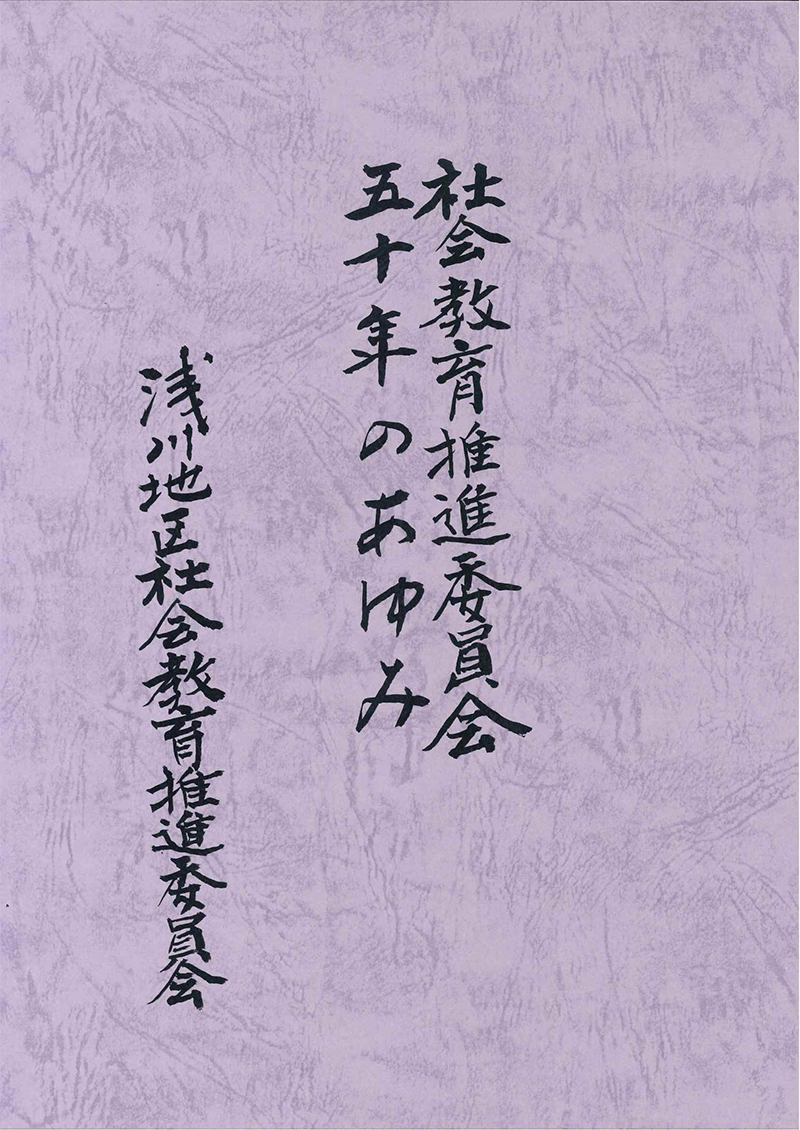 社会教育推進委員会
五十年のあゆみ
浅川地区社会教育推進委員会